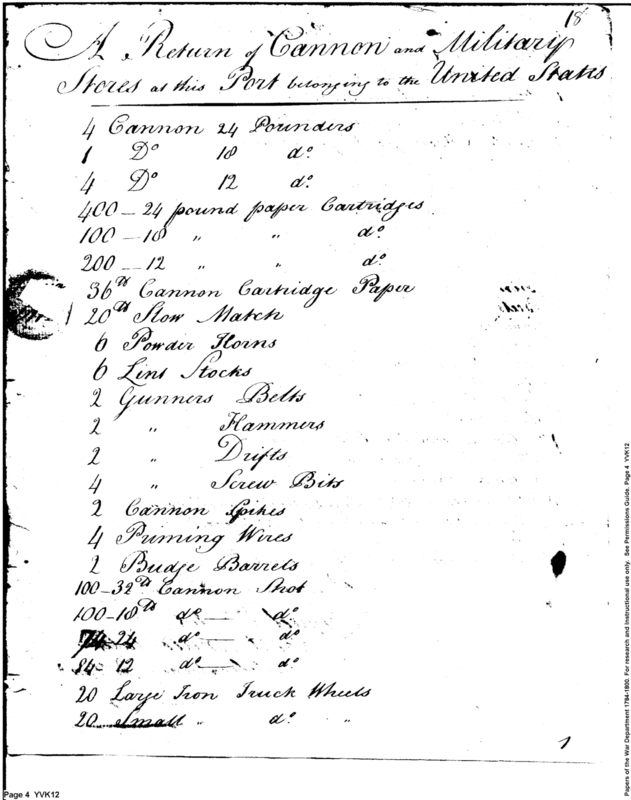 18
A Return of Cannon and Military
Stores at this Port belonging to the United States
4 Cannon 24 Pounders
1 Do 18 do.
4 Do 12 do.
400 - 24 pound paper Cartridges
100 - 18 " " do.
200 - 12 " " do.
36 lbs Cannon Cartridge Paper
20 lbs Slow Match
6 Powder Horns
6 Lint Stocks
2 Gunners Belts
2 " Hammers
2 " Drifts
4 " Screw Bits
2 Cannon Spikes
4 Priming Wires
2 Budge Barrels
100 - 32 lbs Cannon Shot
100 - 18 lbs do — do
74 - 24 do — do
84 - 12 do — do
20 Large Iron Truck Wheels
20 Small " do. "
1
Page 4 YVK12
Papers of the War Department 1784-1800. For research and instructional use only. See Permissions Guide. Page 4 YVK12